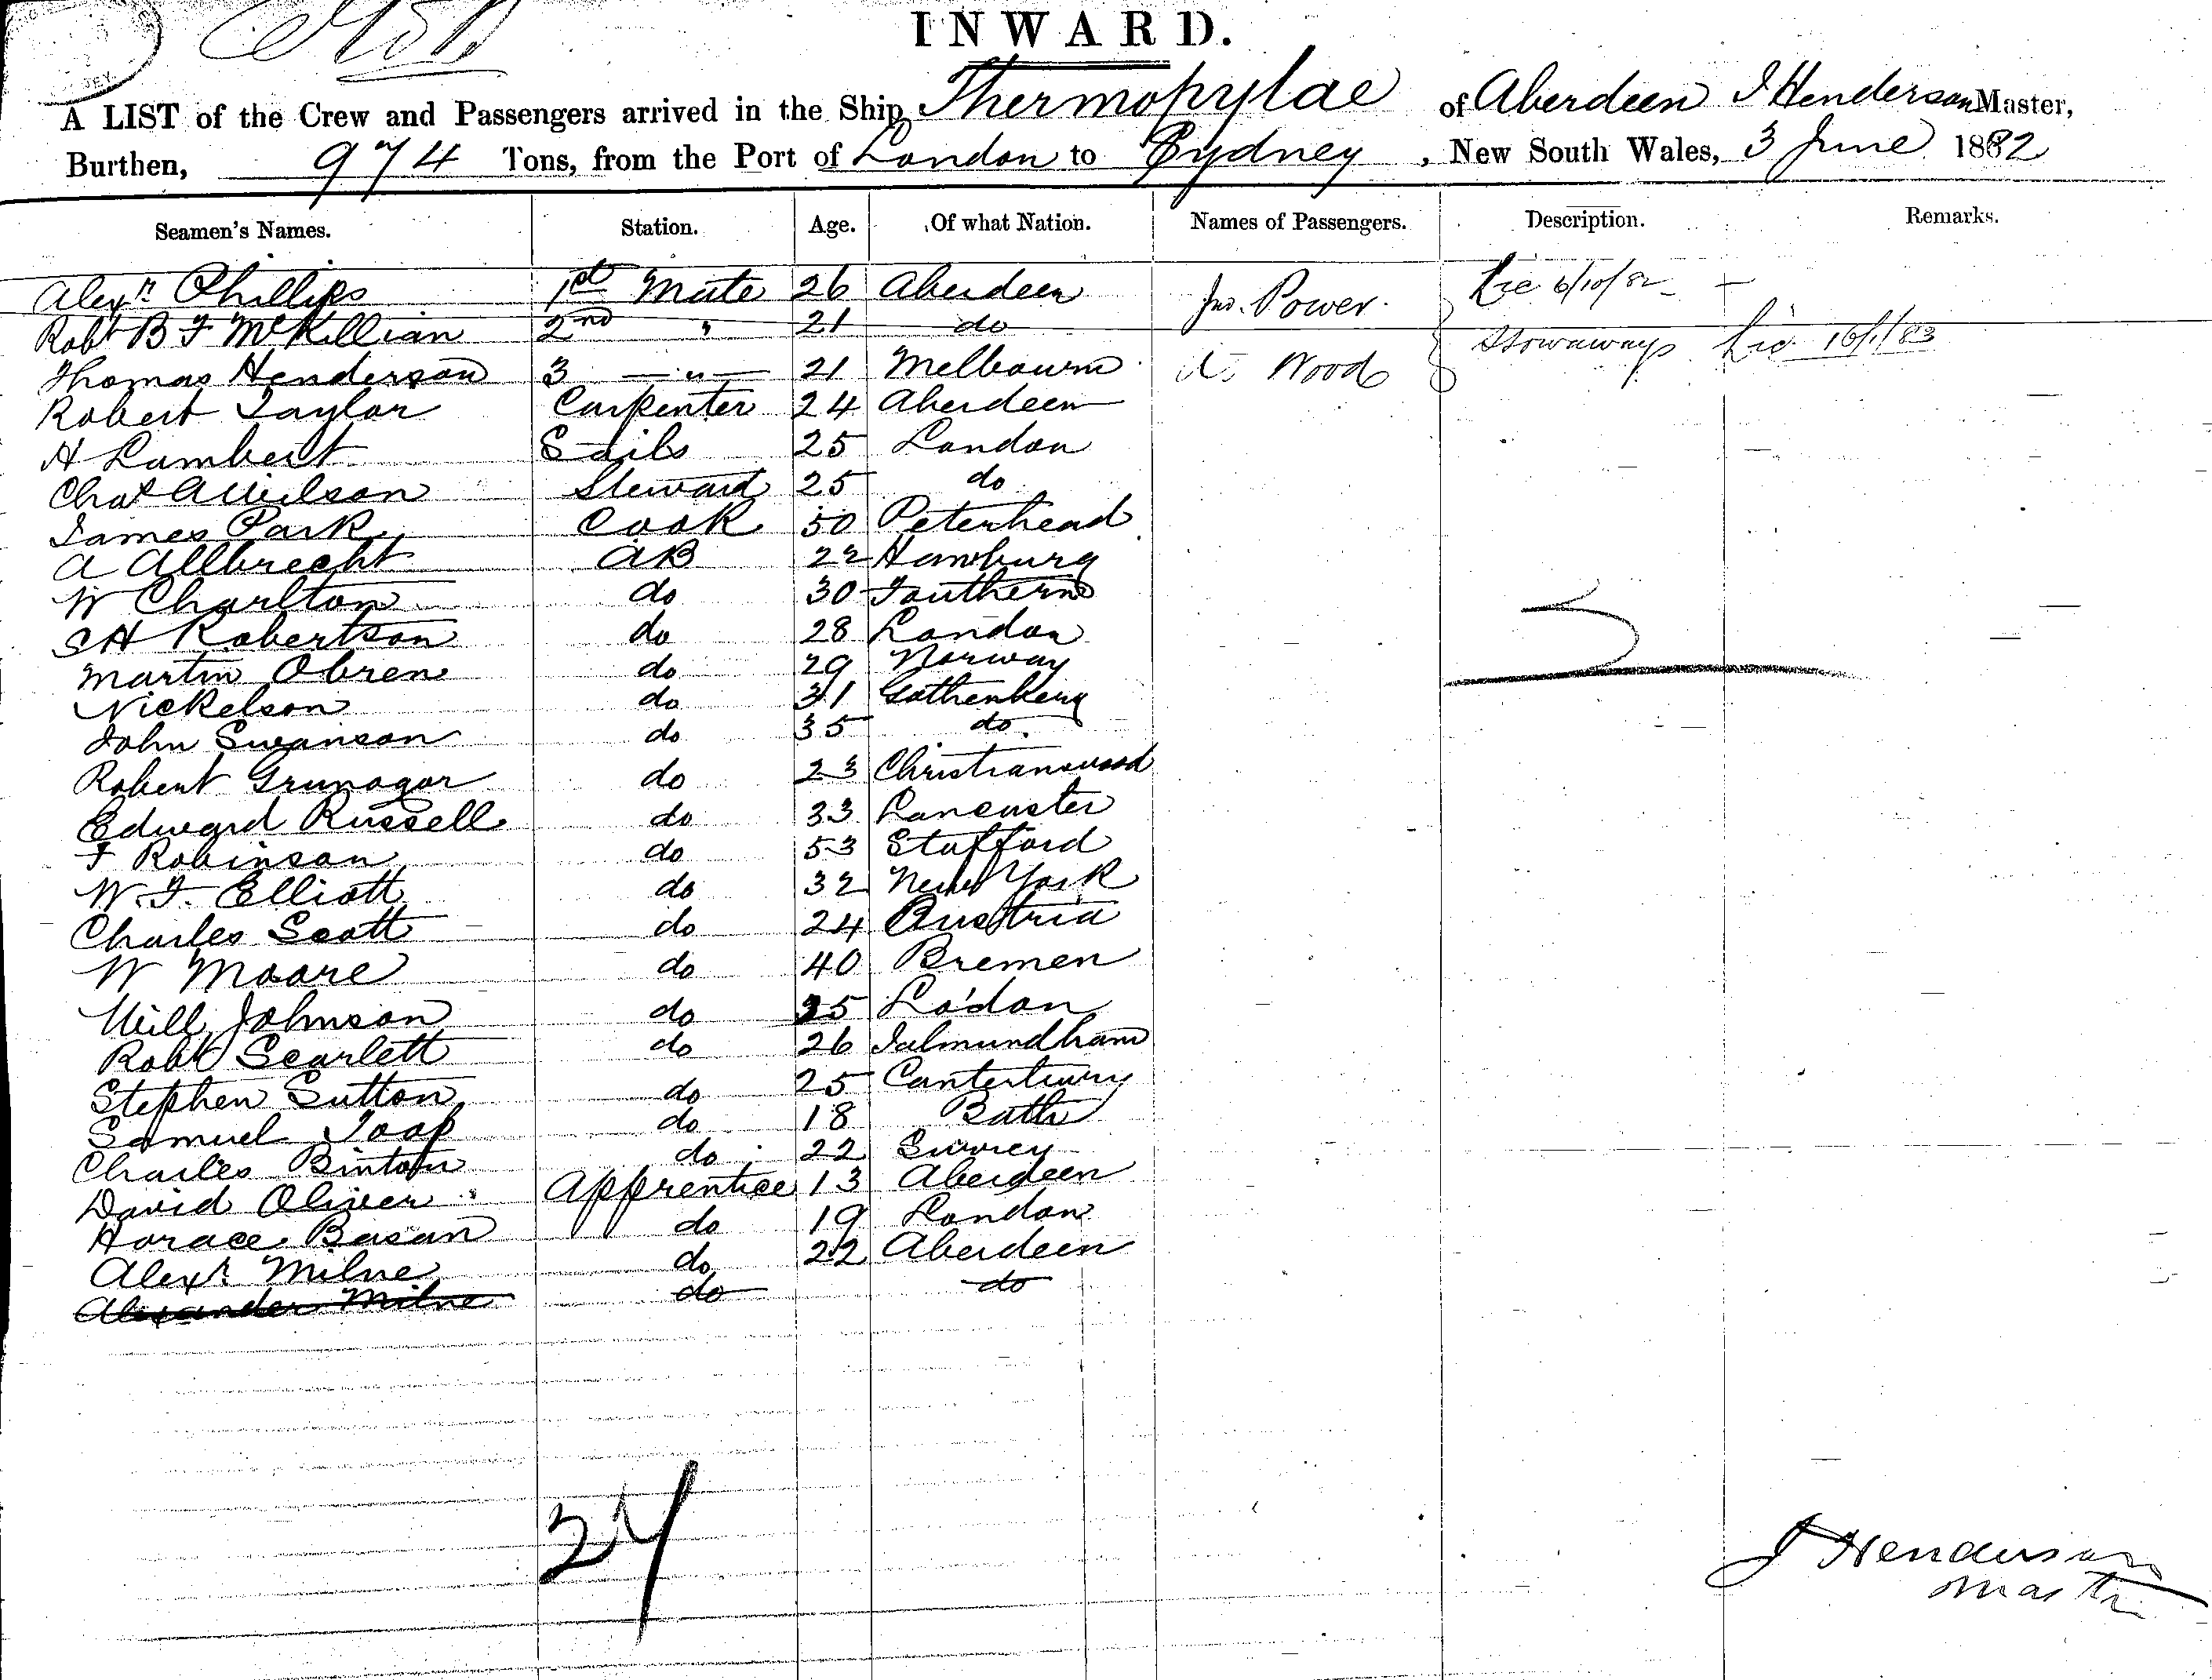 INWARD.
A LIST of the Crew and Passengers arrived in the Ship Thermopylae of Aberdeen J Henderson Master,
Burthen, 974 Tons, from the Port of London to Sydney, New South Wales, 3 June 1882
Seamen's Names. Station. Age. Of what Nation. Names of Passengers. Description. Remarks.
Alexr Phillips 1st Mate 26 Aberdeen Jno. Power. Lic 6/10/82
Robt B F McKillian 2nd " 21 do
Thomas Henderson 3 " 21 Melbourn Wood Stowaways Lic 16/1/83
Robert Taylor Carpenter 24 Aberdeen
H Lambert Sails 25 London
Chas Wilson Steward 25 do
James Park Cook 50 Peterhead
A Allbrecht AB 22 Hamburg
W Charlton do 30 Southern
S H Robertson do 28 London
Martin Obren do 29 Norway
Nickelson do 31 Gothenberg
John Swanson do 35 do.
Robert Grunagor do 23 Christianssand
Edward Russell do 33 Lancaster
F Robinson do 53 Stafford
W. F. Elliott do 32 New York
Charles Scott do 24 Austria
W Moore do 40 Bremen
Will Johnson do 25 Lodon
Robt Scarlett do 26 Salmundham
Stephen Sutton do 25 Canterbury
Samuel Toop do 18 Bath
Charles Binton do 22 Surrey
David Oliver Apprentice 13 Aberdeen
Horace Basan do 19 London
Alexr Milne do 22 Aberdeen
Alexander Milne do do
27
J Henderson
Master